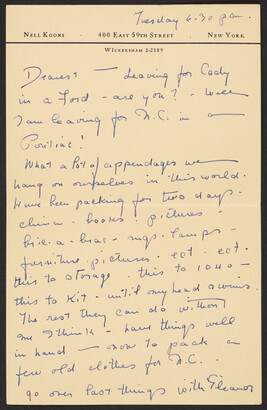 Tuesday 6-30 p.m.
NELL KOONS · 400 EAST 59TH STREET · NEW YORK
WICKERSHAM 2-2189
Dearest — Leaving for Cody
in a Ford - are you? - Well
I am leaving for N.C. in a
Pontiac!
What a lot of appendages we
hang on ourselves in this world.
Have been packing for two days -
china - books - pictures -
bric-a-brac - rugs - lamps -
furniture - pictures - ect - ect -
this to storage - this to 1040 -
this to Kit - until my head swims.
The rest they can do without
me I think - have things well
in hand — now to pack a
few old clothes for N.C. -
go over last things with Eleanor